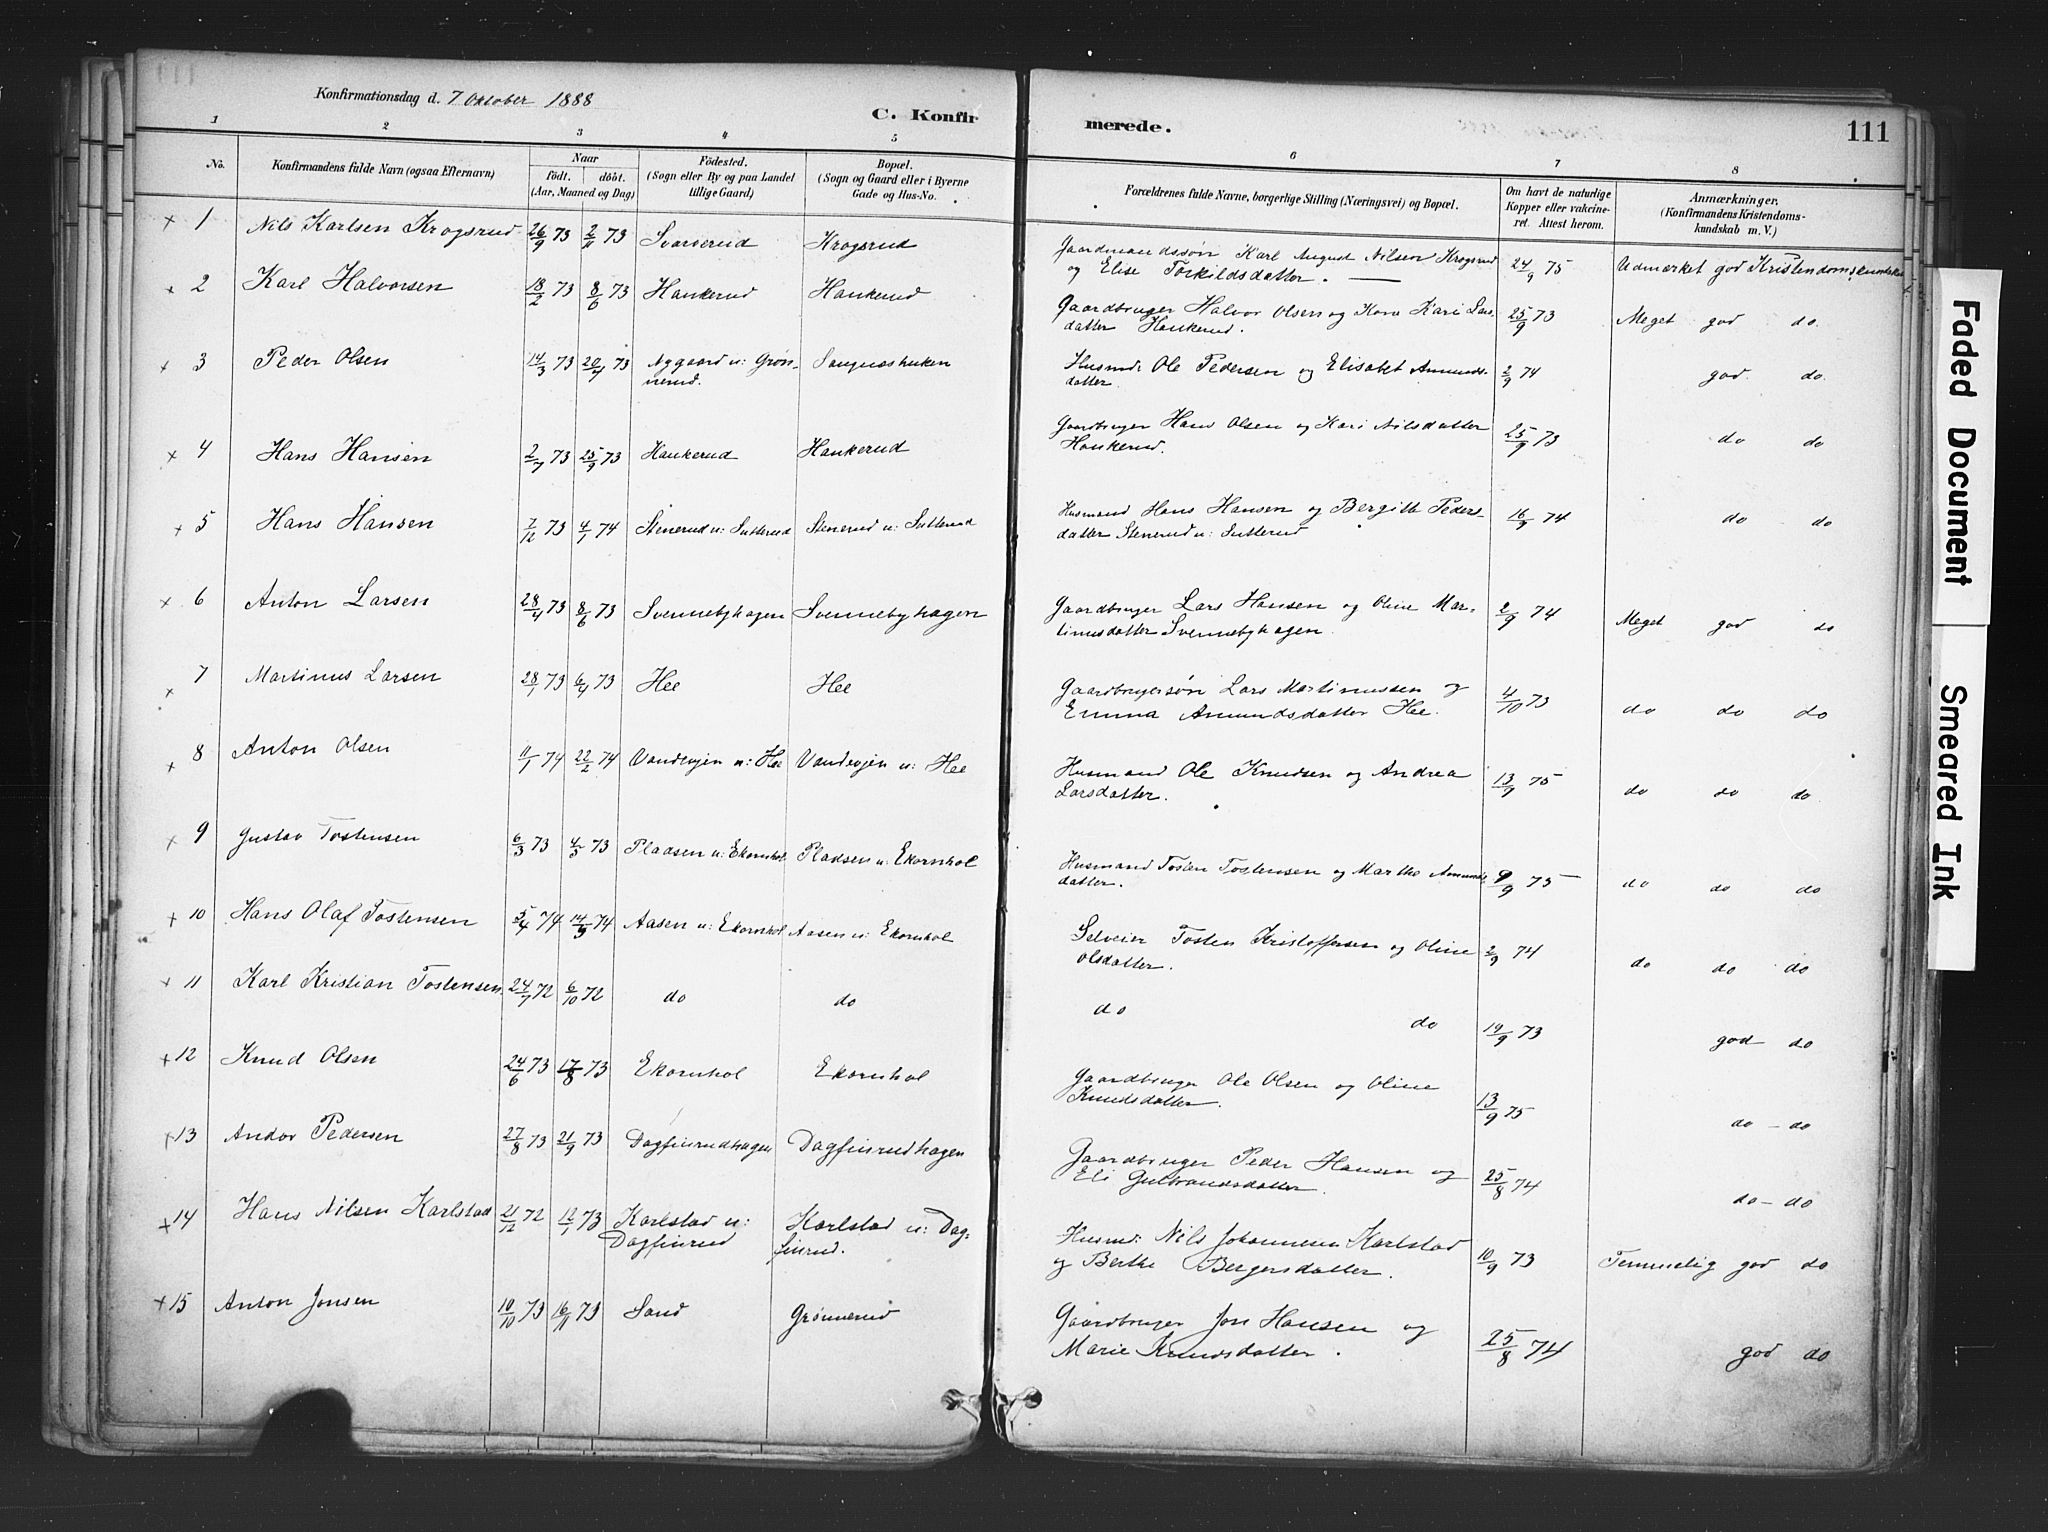 Konfirmationsdag d. 7 Oktober 1888
C. Konfirmerede.
111
1 2 3 4 5 6 7 8
No.
Konfirmandens fulde Navn (ogsaa Efternavn)
Naar
födt. döbt.
(Aar, Maaned og Dag)
Födested.
(Sogn eller By og paa Landet
tillige Gaard)
Bopæl.
(Sogn og Gaard eller i Byerne
Gade og Hus-No.
Forældrenes fulde Navne, borgerlige Stilling (Næringsvei) og Bopæl.
Om havt de naturlige
Kopper eller vakcine-
ret. Attest herom.
Anmærkninger.
(Konfirmandens Kristendoms-
kundskab m. V.)
x 1 Nils Karlsen Krogsrud 26/9 73 2/11 73 Svarverud Krogsrud Gaardmandssön Karl August Nilsen Krogsrud
og Elise Torkildsdatter. — 24/9 75 Udmærket god Kristendomskundskab
x 2 Karl Halvorsen 18/2 73 8/6 73 Haukerud Haukerud Gaardbruger Halvor Olsen og Kone Kari Lars-
datter Haukerud. 25/9 73 Meget god do.
x 3 Peder Olsen 14/3 73 20/4 73 Nygaard u: Grön-
nerud. Husmd: Ole Pedersen og Elisabet Amunds-
datter. 2/9 74 god do.
x 4 Hans Hansen 2/7 73 25/9 73 Haukerud Haukerud Gaardbruger Hans Olsen og Kari Nilsdatter
Haukerud. 25/9 73 do do
x 5 Hans Hansen 7/12 73 4/1 74 Stenerud u: Sutterud Stenerud u: Sutterud Husmand Hans Hansen og Bergitte Peders-
datter Stenerud u: Sutterud 16/9 74 do - do
x 6 Anton Larsen 28/4 73 8/6 73 Svennebyhagen Svennebyhagen Gaardbruger Lars Hansen og Oline Mar-
tinusdatter Svennebyhagen. 2/9 74 Meget god do
x 7 Martinus Larsen 28/1 73 6/4 73 Hee Hee Gaardbrugersön Lars Martinussen og
Emma Amundsdatter Hee. 4/10 73 do do do
x 8 Anton Olsen 11/1 74 22/2 74 Vandvejen u: Hee Vandvejen u: Hee Husmand Ole Knudsen og Andrea
Larsdatter. 13/9 75 do do do
x 9 Gustav Tostensen 6/3 73 4/5 73 Pladsen u: Ekornhol Pladsen u: Ekornhol Husmand Tosten Tostensen og Marthe Amunds
datter. 9/9 75 do do do
x 10 Hans Olaf Tostensen 5/4 74 14/5 74 Aasen u: Ekornhol Aasen u: Ekornhol Selveier Tosten Kristoffersen og Oline
Olsdatter. 2/9 74 do do do
x 11 Karl Kristian Tostensen 24/7 72 6/10 72 do do do do 19/9 73 god do
x 12 Knud Olsen 24/6 73 17/8 73 Ekornhol Ekornhol Gaardbruger Ole Olsen og Oline
Knudsdatter. 13/9 75 do - do
x 13 Andor Pedersen 27/8 73 21/9 73 Dagfinrudhagen Dagfinrudhagen Gaardbruger Peder Hansen og
Eli Gulbrandsdatter. 25/8 74 do - do
x 14 Hans Nilsen Karlstad 21/12 72 12/1 73 Karlstad u:
Dagfinrud Karlstad u: Dag-
finrud. Husmd: Nils Johannesen Karlstad
og Berthe Bergersdatter. 10/9 73 Temmelig god do
x 15 Anton Jonsen 10/10 73 16/11 73 Sand Grönnerud Gaardbruger Jon Hansen og
Marie Knudsdatter. 25/8 74 god do
Faded Document
Smeared Ink